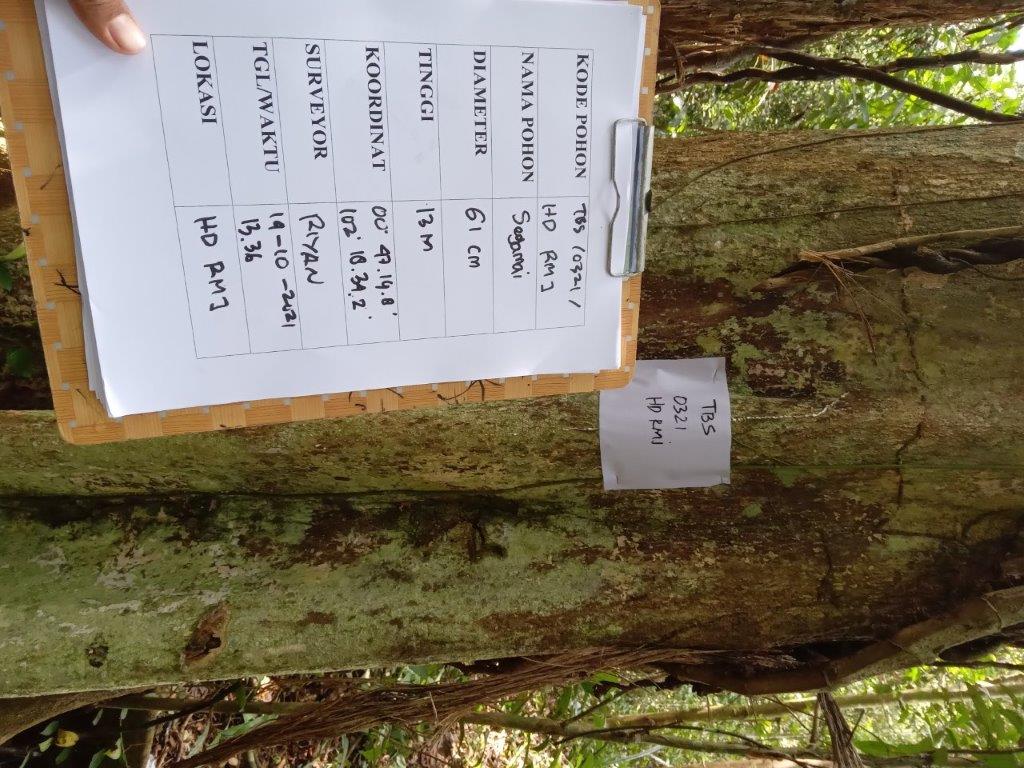 KODE POHON TBS /0321/
HD RMJ
NAMA POHON Segamai
DIAMETER 61 cm
TINGGI 13 M
KOORDINAT 00° 47. 14.8'
102° 18. 34.2'
SURVEYOR RIYAN
TGL/WAKTU 19-10-2021
13.36
LOKASI HD RMJ
TBS
0321
HD RMJ